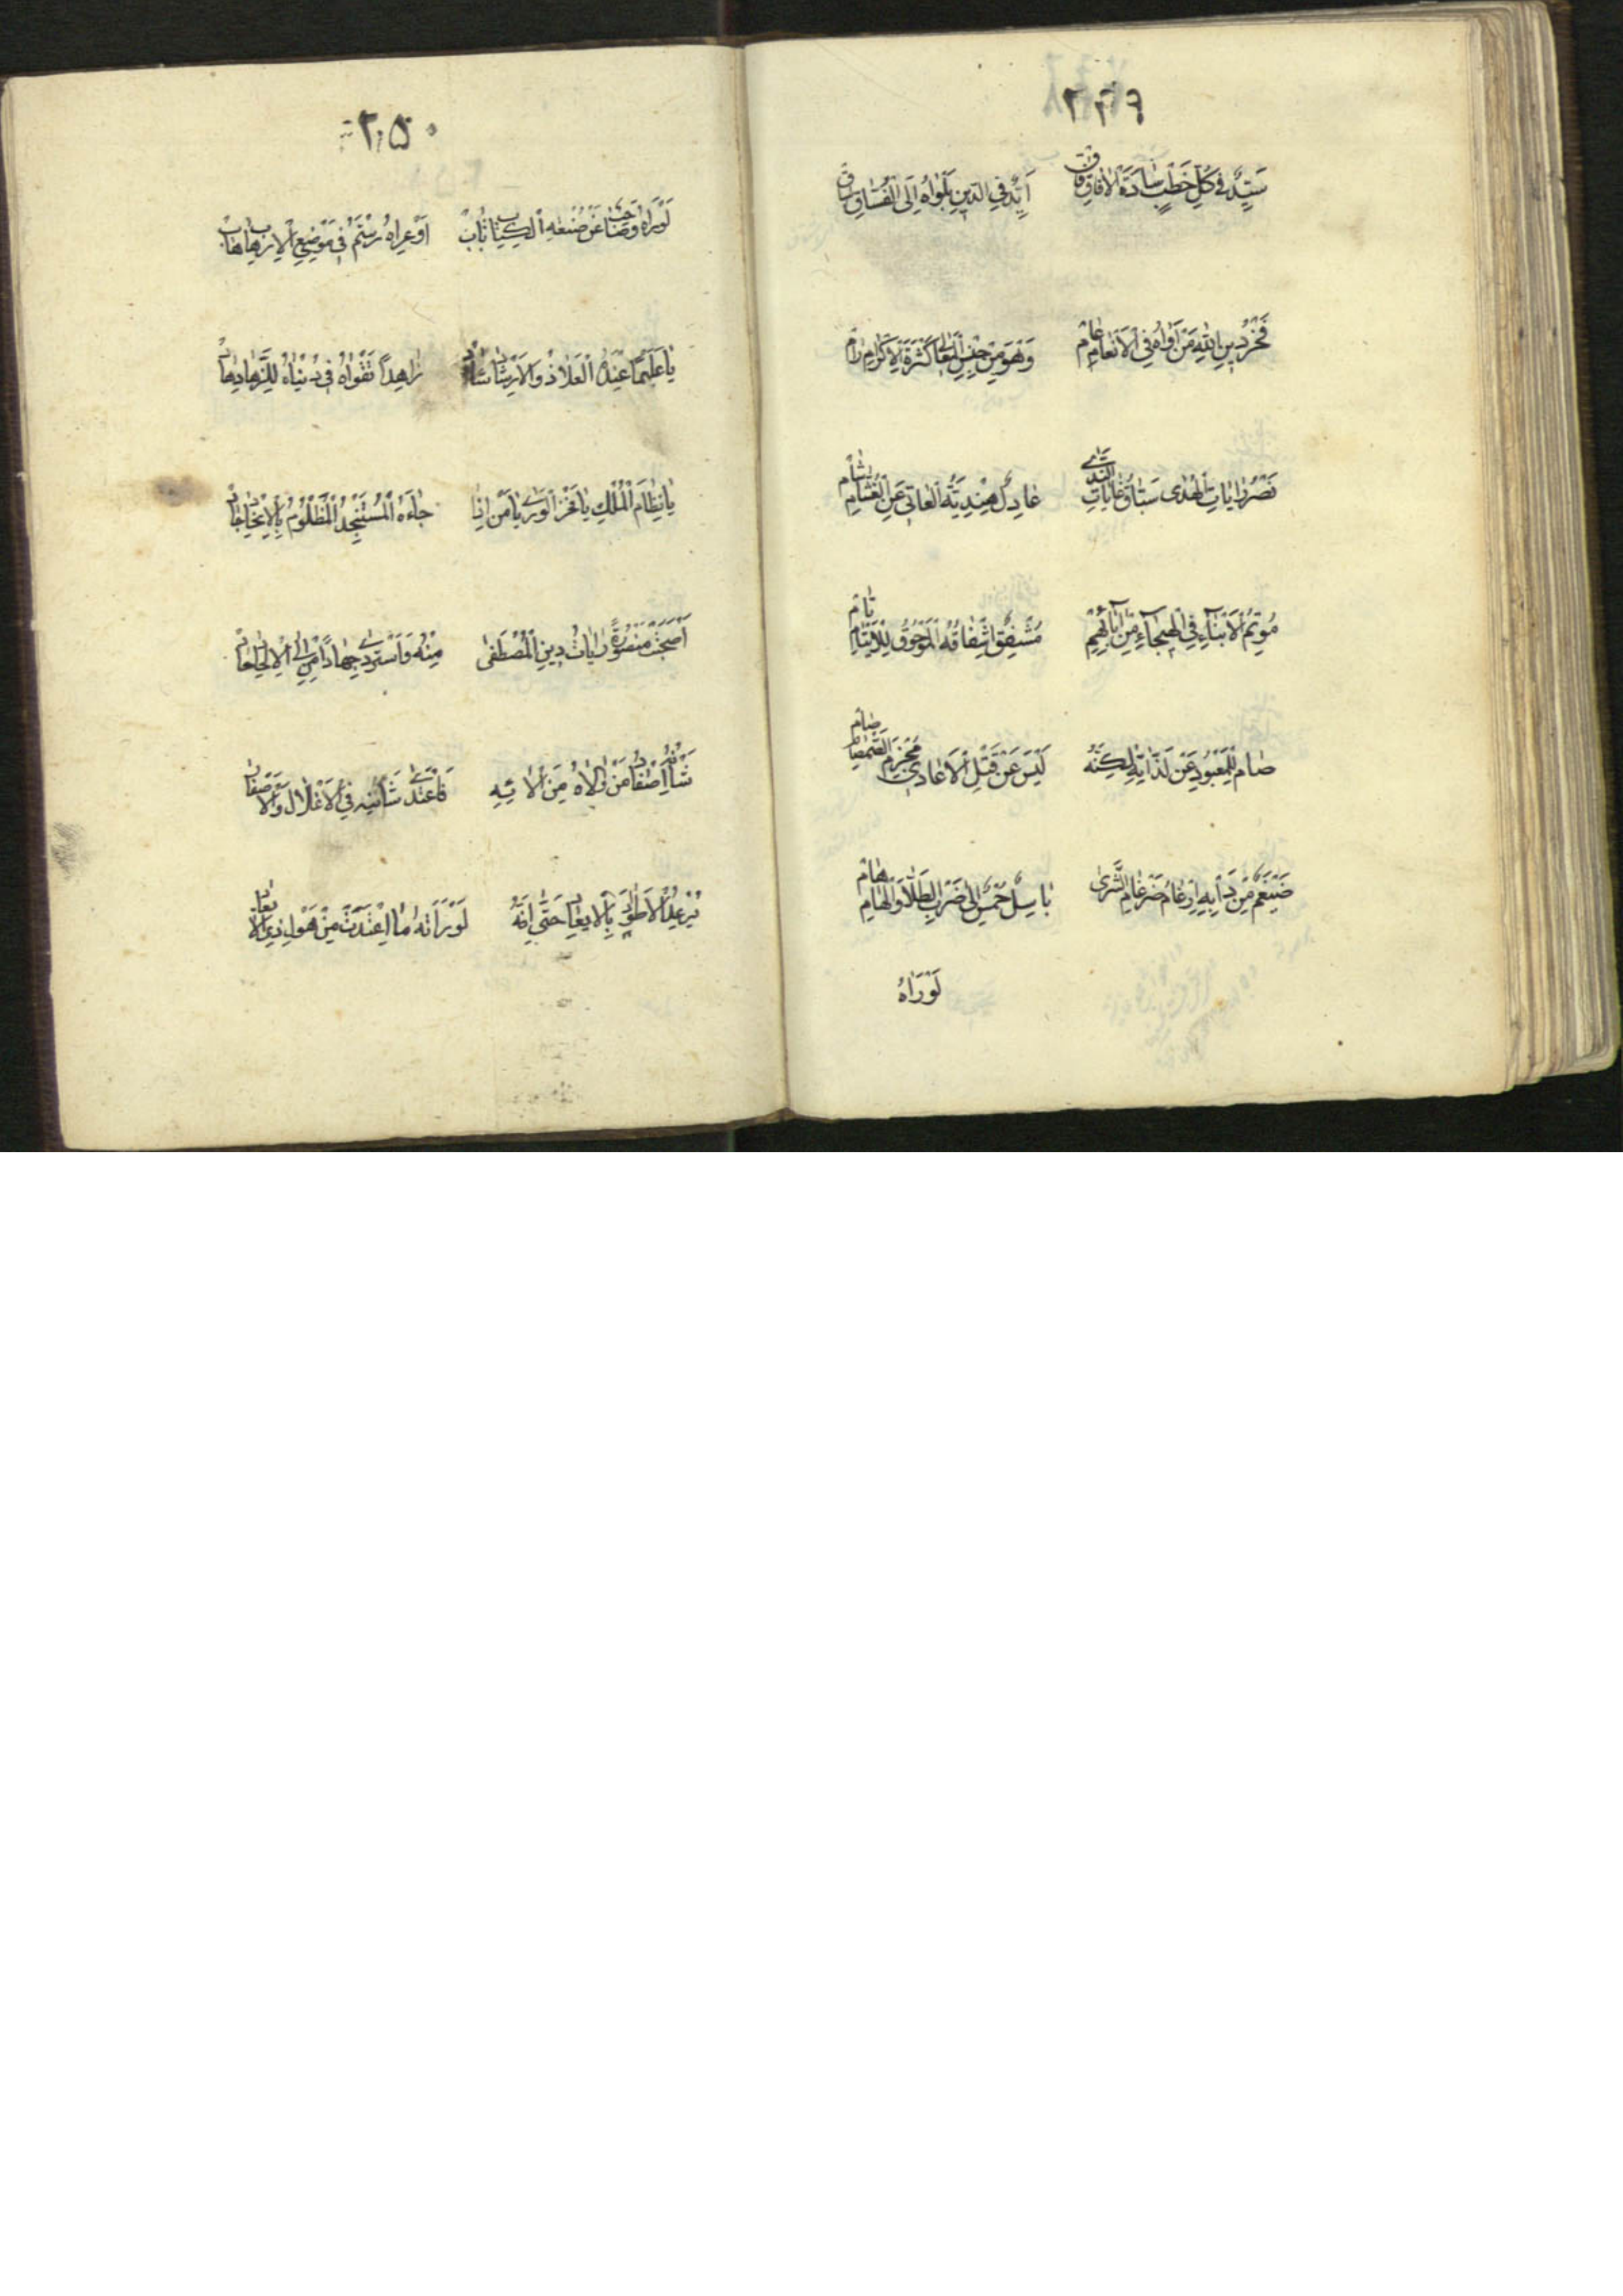 ٢٤٩
سَيِّدٌ فِي كُلِّ خَطْبٍ سَادَةَ الْآفَاقِ فَاقْ اَيِّدٌ فِي الدِّينِ بَلْوَاهُ اِلَى الْفُسَّاقِ سَاقْ
فَخْرُ دِينِ اللهِ مَنْ آوَاهُ فِي الْاَنْعَامِ عَامْ وَهْوَ مِنْ الْمَعَالِي كَثْرَةَ الْاِكْرَامِ رَامْ
نَصْرُ رَايَاتِ الْهُدَى سَبَّاقُ غَايَاتِ النَّدَى عَادِلٌ هِنْدِيَّةُ الْعَاتِي عَنِ الْغُشَّامِ شَامْ
مُوتِمُ الْاَبْنَاءِ فِي الْهَيْجَاءِ مِنْ آبَائِهِمْ مُشْفِقٌ اِشْفَاقُهُ الْمَرْجُوُّ لِلْاَيْتَامِ تَامْ
صَامَ لِلْمَعْبُودِ عَنْ لَذَّاتِهِ لٰكِنَّهُ لَيْسَ عَنْ قَتْلِ الْاَعَادِي الصَّمْصَامِ صَامْ
ضَيْغَمٌ مِنْ دَأْبِهِ اِرْغَامُ ضَرْغَامِ الشَّرَى بَاسِلٌ اِلَى ضَرْبِ الطُّلَا وَالْهَامِ هَامْ
لَوْ رَاٰهُ
٢٥٠
لَوْ رَاٰهُ عَنْ صُنْعِهِ تَابْ اَوْ عَرَاهُ رُسْتَمُ فِي مَوْضِعِ الْاِرْهَابِ هَابْ
يَا عَلِيمًا عِنْدَهُ الْعَلَّاذُ وَالْاِرْشَادُ شَادْ زَاهِدًا تَقْوَاهُ فِي دُنْيَاهُ لِلزُّهَّادِ هَادْ
يَا نِظَامَ الْمُلْكِ يَا فَخْرَ الْوَرَى يَا مَنْ اِذَا جَاءَهُ الْمُسْتَنْجِدُ الْمَظْلُومُ بِالْاِنْجَادِ جَادْ
اَصْبَحَتْ مَنْصُورَةً رَايَاتُ دِينِ الْمُصْطَفَى مِنْهُ وَاسْتَرْدَى جِهَادًا مَنْ اِلَى الْاِلْحَادِ حَادْ
شَأْنُهُ اِصْفَادُ مَنْ وَالَاهُ مِنْ اٰلَائِهِ فَاعْتَدَى شَانِيهِ فِي الْاَغْلَالِ وَالْاَصْفَادِ
يُرْعِدُ الْاَطْوَادَ بِالْاِيعَادِ حَتَّى اِنَّهُ لَوْ رَاَتْهُ مَا اغْتَدَتْ مِنْ هَوْلِ ذِي الْاِيعَادِ